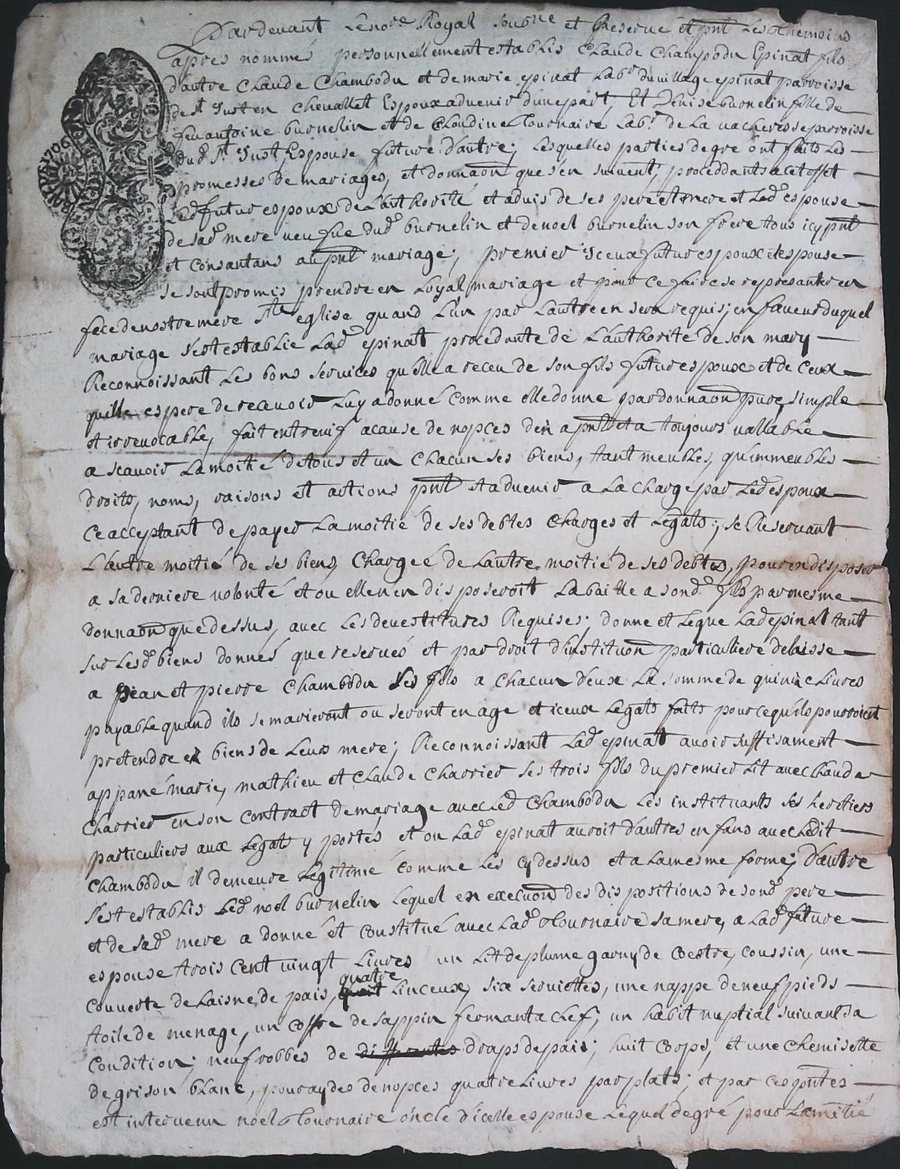 Pardevant Le no.re Royal Soubne et Reservé et pnt Les themoins
apres nommés personnellement establis Claude Chambodu Epinat fils
d'autre Claude Chambodu et de marie epinat Lab.r du village epinat parroisse
de S.t Just en Chevallet Espoux advenir d'une part, Et Denise burnelin fille de
feu antoine burnelin et de Claudine Tournaire Lab.r de La vacheresse parroisse
du d. S.t Just Espouse future d'autre; Lesquelles parties de gré ont faits Les
promesses de mariages, et donnaon que s'en suivent, proceddants a cet effet
Led futur espoux de L'authorité et advis de ses pere et mere et Lad espouse
de sad. mere veufve dud. burnelin et de noel burnelin son frere tous icy pnt
et Consantans au pnt mariage; premier Iceux futurs espoux et espouse
se sont promis prendre en Loyal mariage et pour ce faire se representer en
fece de nostre mere S.te eglise quand L'un par Lautre en sera requis; en faveur du quel
mariage s'est establie Lad epinat procedante de L'authorité de son mary
Reconnoissant Les bons services qu'elle a receu de son fils futur espoux et de Ceux
quille espere de recevoir Luy a donné comme elle donne par donnaon pure, simple
et irrevocable, fait entre vif a cause de nopces den apnt et a toujours vallable
a scavoir La moitié de tous et un chacun ses biens, tant meubles, qu'immeubles
droits, noms, raisons et actions pnt et advenir a La charge par Led espoux
Ce acceptant de payer La moitié de ses debtes Charges et Legats; se Reservant
L'autre moitié de ses biens Chargée de Lautre moitié de ses debtes, pour en disposer
a sa derniere volonté et ou elle n'en disposeroit La baille a sond. fils par mesme
donnaon que dessus, avec Les devestitures Requises; donne et Legue Lad epinat tant
sur Lesd. biens donnés que reservés et par droit d'instituon particuliere delaisse
a Jean et pierre Chambodu ses fils a Chacun d'eux La somme de quinze Livres
payable quand ils se marieront ou seront en age et iceux Legats faits pour ce qu'ils pourroient
pretendre es biens de Leur mere; Reconnoissant Lad. epinat avoir suffisament
appané marie, mathieu et Claude Charrier ses trois fils du premier Lit avec Claude
Charrier en son Contract de mariage avec Led. Chambodu Les instituants ses heritiers
particuliers aux Legats y portes et ou Lad. epinat auroit d'autres enfans avec Ledit
Chambodu il demeure Legitimé comme Les cy dessus et a La mesme forme; d'autre
s'est establis Led. noel burnelin Lequel en execuon des dispositions de sond. pere
et de sad. mere a donné et Constitué avec Lad. Tournaire sa mere, a Lad. future
espouse trois Cent vingt Livres un Lit de plume garny de Coestre, coussin, une
Couverte de Laisne de pais, quatre Linceux, six serviettes, une nappe de neuf pieds
toile de menage, un coffre de sappin fermant a Clef, un habit nuptial suivant sa
Condition; neuf robbes de differentes draps de pais; huit Corps, et une Chemisette
de grison blanc, pour aydes de nopces quatre Livres par plats; et par Ces pntes
est intervenu noel Tournaire oncle d'icelle espouse Lequel de gré pour Lamitié